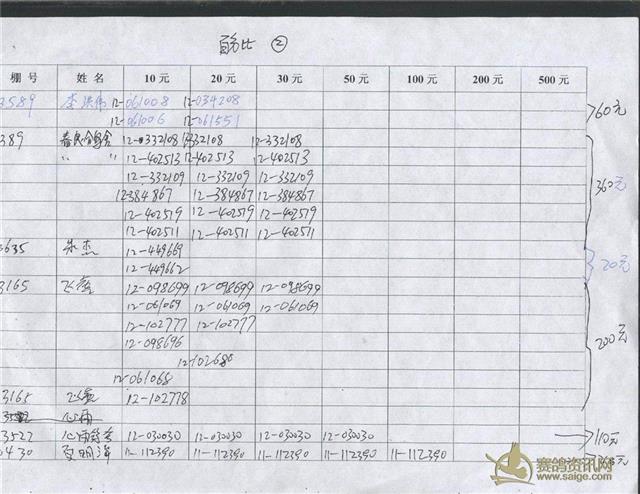 百分比 ②
棚号 姓名 10元 20元 30元 50元 100元 200元 500元
3589 李洪伟 12-061008 12-034208
12-061006 12-061551 60元
389 12-332108 12-332108 12-332108
〃 〃 12-402513 12-402513 12-402513
12-332109 12-332109 12-332109
12-384867 12-384867 12-384867 360元
12-402519 12-402519 12-402519
12-402511 12-402511 12-402511
3635 朱杰 12-449669
12-449662 20元
3165 12-098699 12-098699 12-098699
12-061069 12-061069 12-061069
12-102777 12-102777
12-098696 200元
12-102680
12-061068
3165 12-102778
3522 12-030030 12-030030 12-030030 12-030030 110元
0430 夏明泽 11-112390 11-112390 11-112390 11-112390 11-112390
赛鸽资讯网
www.saige.com